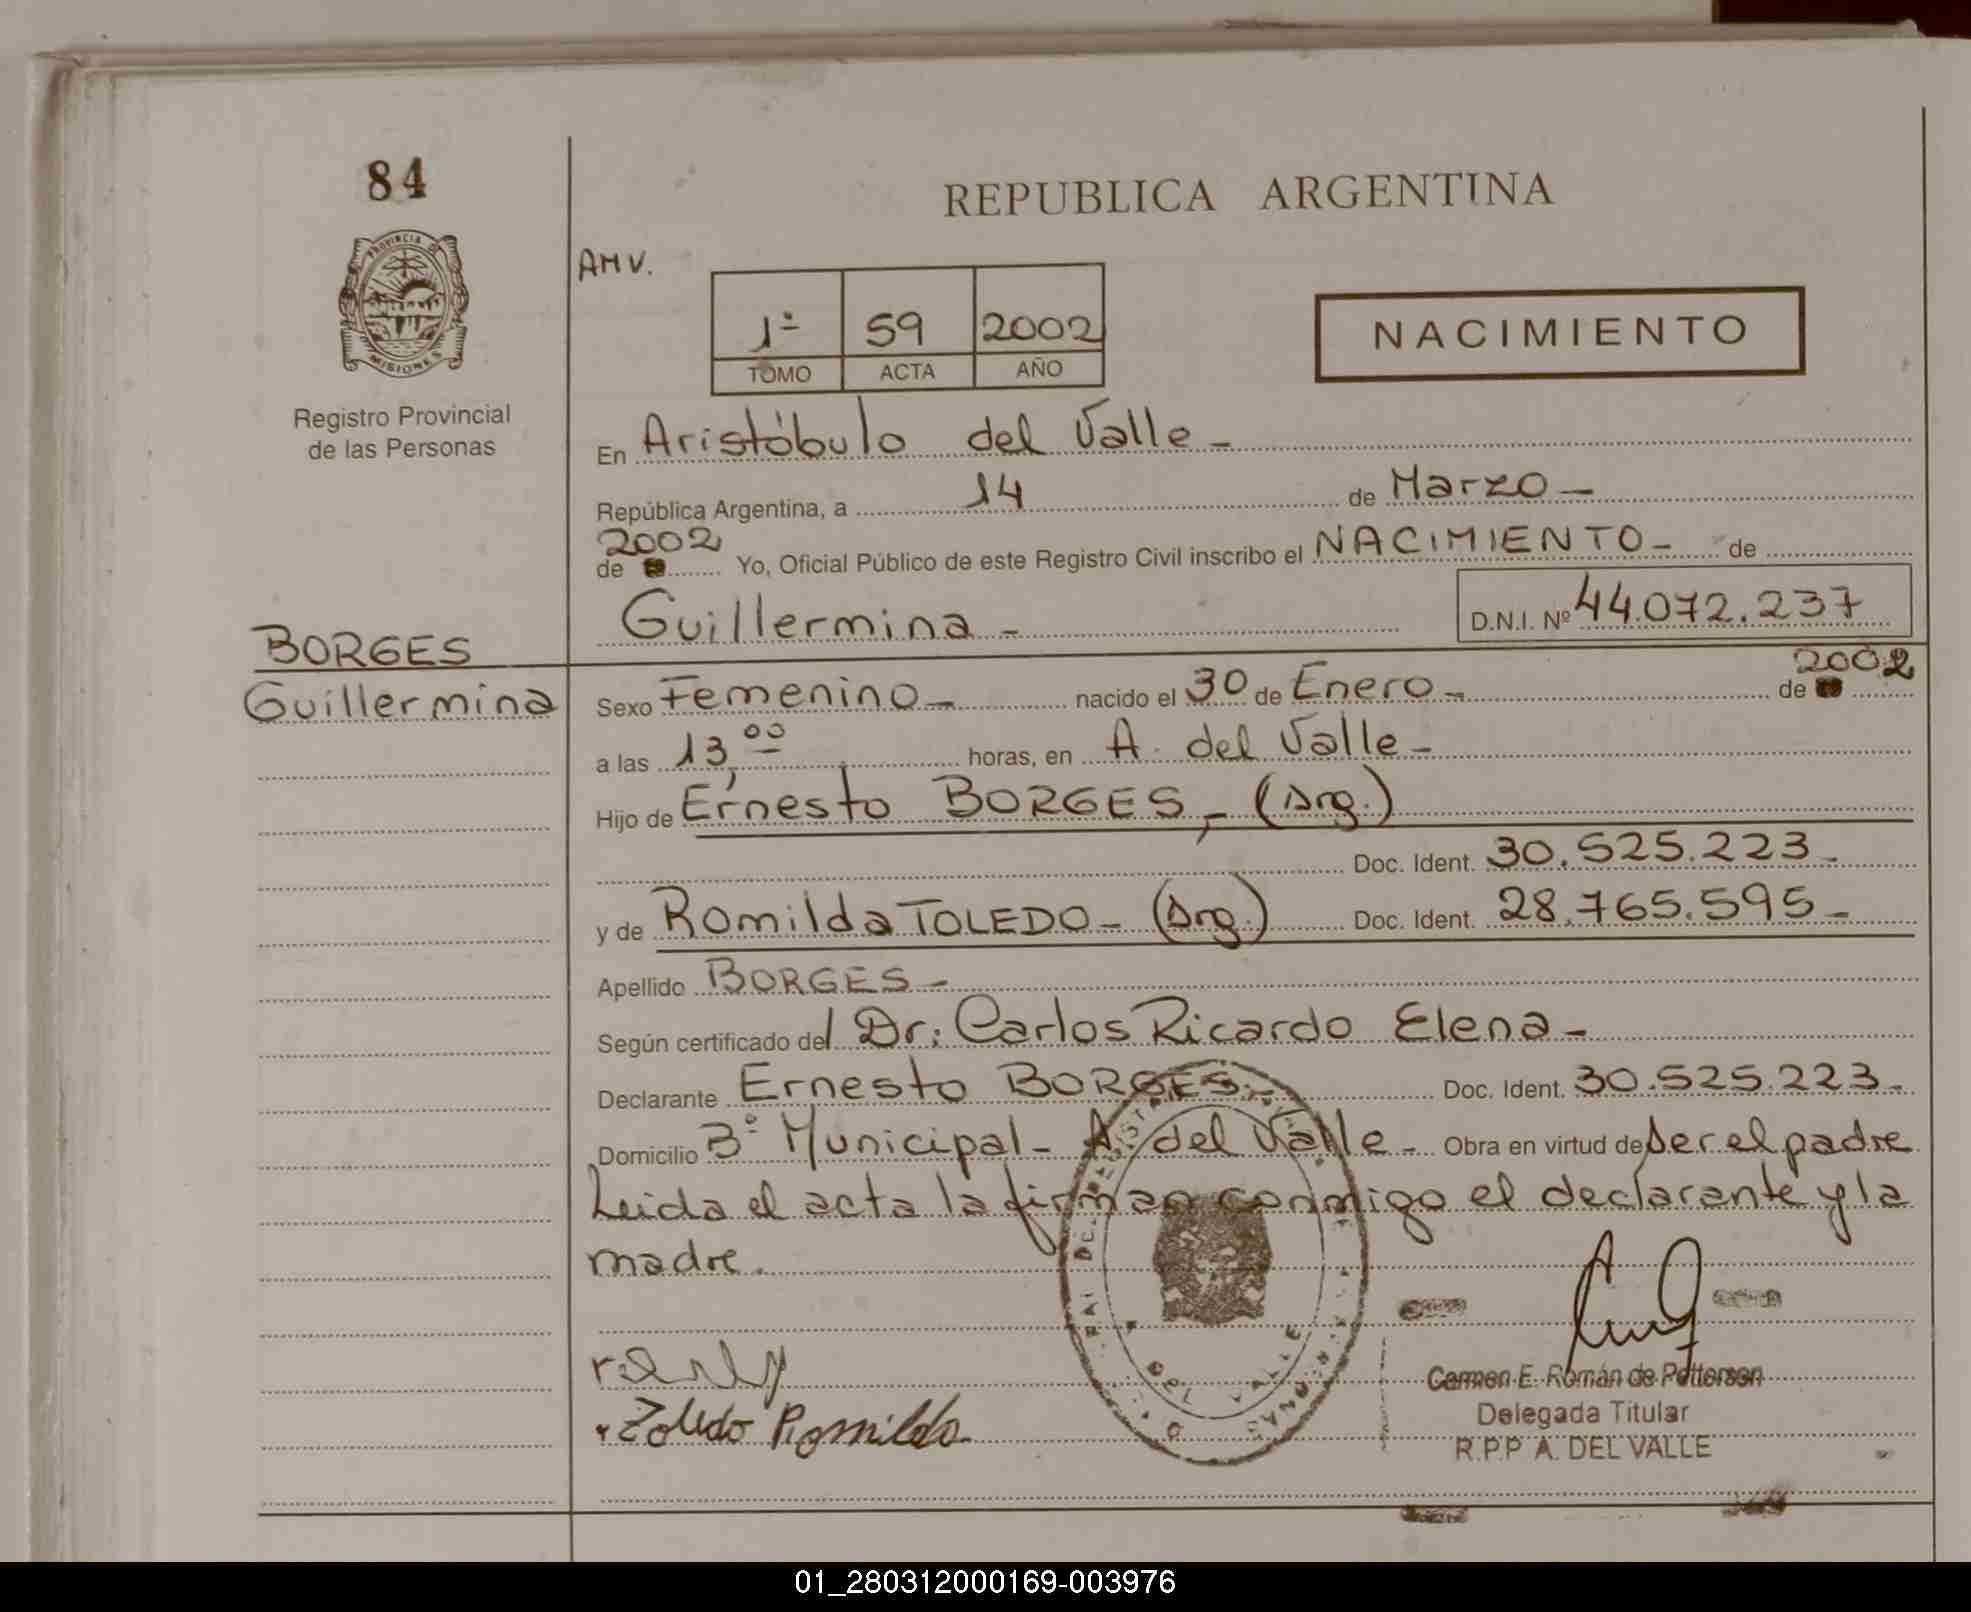 84
PROVINCIA DE
MISIONES
Registro Provincial
de las Personas
BORGES
Guillermina
REPUBLICA ARGENTINA
AMV.
1º 59 2002
TOMO ACTA AÑO
NACIMIENTO
En Aristóbulo del Valle -
República Argentina, a 14 de Marzo -
2002
de Yo, Oficial Público de este Registro Civil inscribo el NACIMIENTO - de
Guillermina - D.N.I. Nº 44.072.237
2002
Sexo Femenino - nacido el 30 de Enero - de
a las 13,00 horas, en A. del Valle -
Hijo de Ernesto BORGES, - (Arg.)
Doc. Ident. 30.525.223 -
y de Romilda TOLEDO - (Arg.) Doc. Ident. 28.765.595 -
Apellido BORGES -
Según certificado del Dr: Carlos Ricardo Elena -
Declarante Ernesto BORGES - Doc. Ident. 30.525.223 -
Domicilio Bº Municipal - A. del Valle - Obra en virtud de ser el padre
Leida el acta la firman conmigo el declarante y la
madre.
Toledo Romilda
DEL VALLE
Carmen E. Román de Petterson
Delegada Titular
R.P.P A. DEL VALLE
01_280312000169-003976